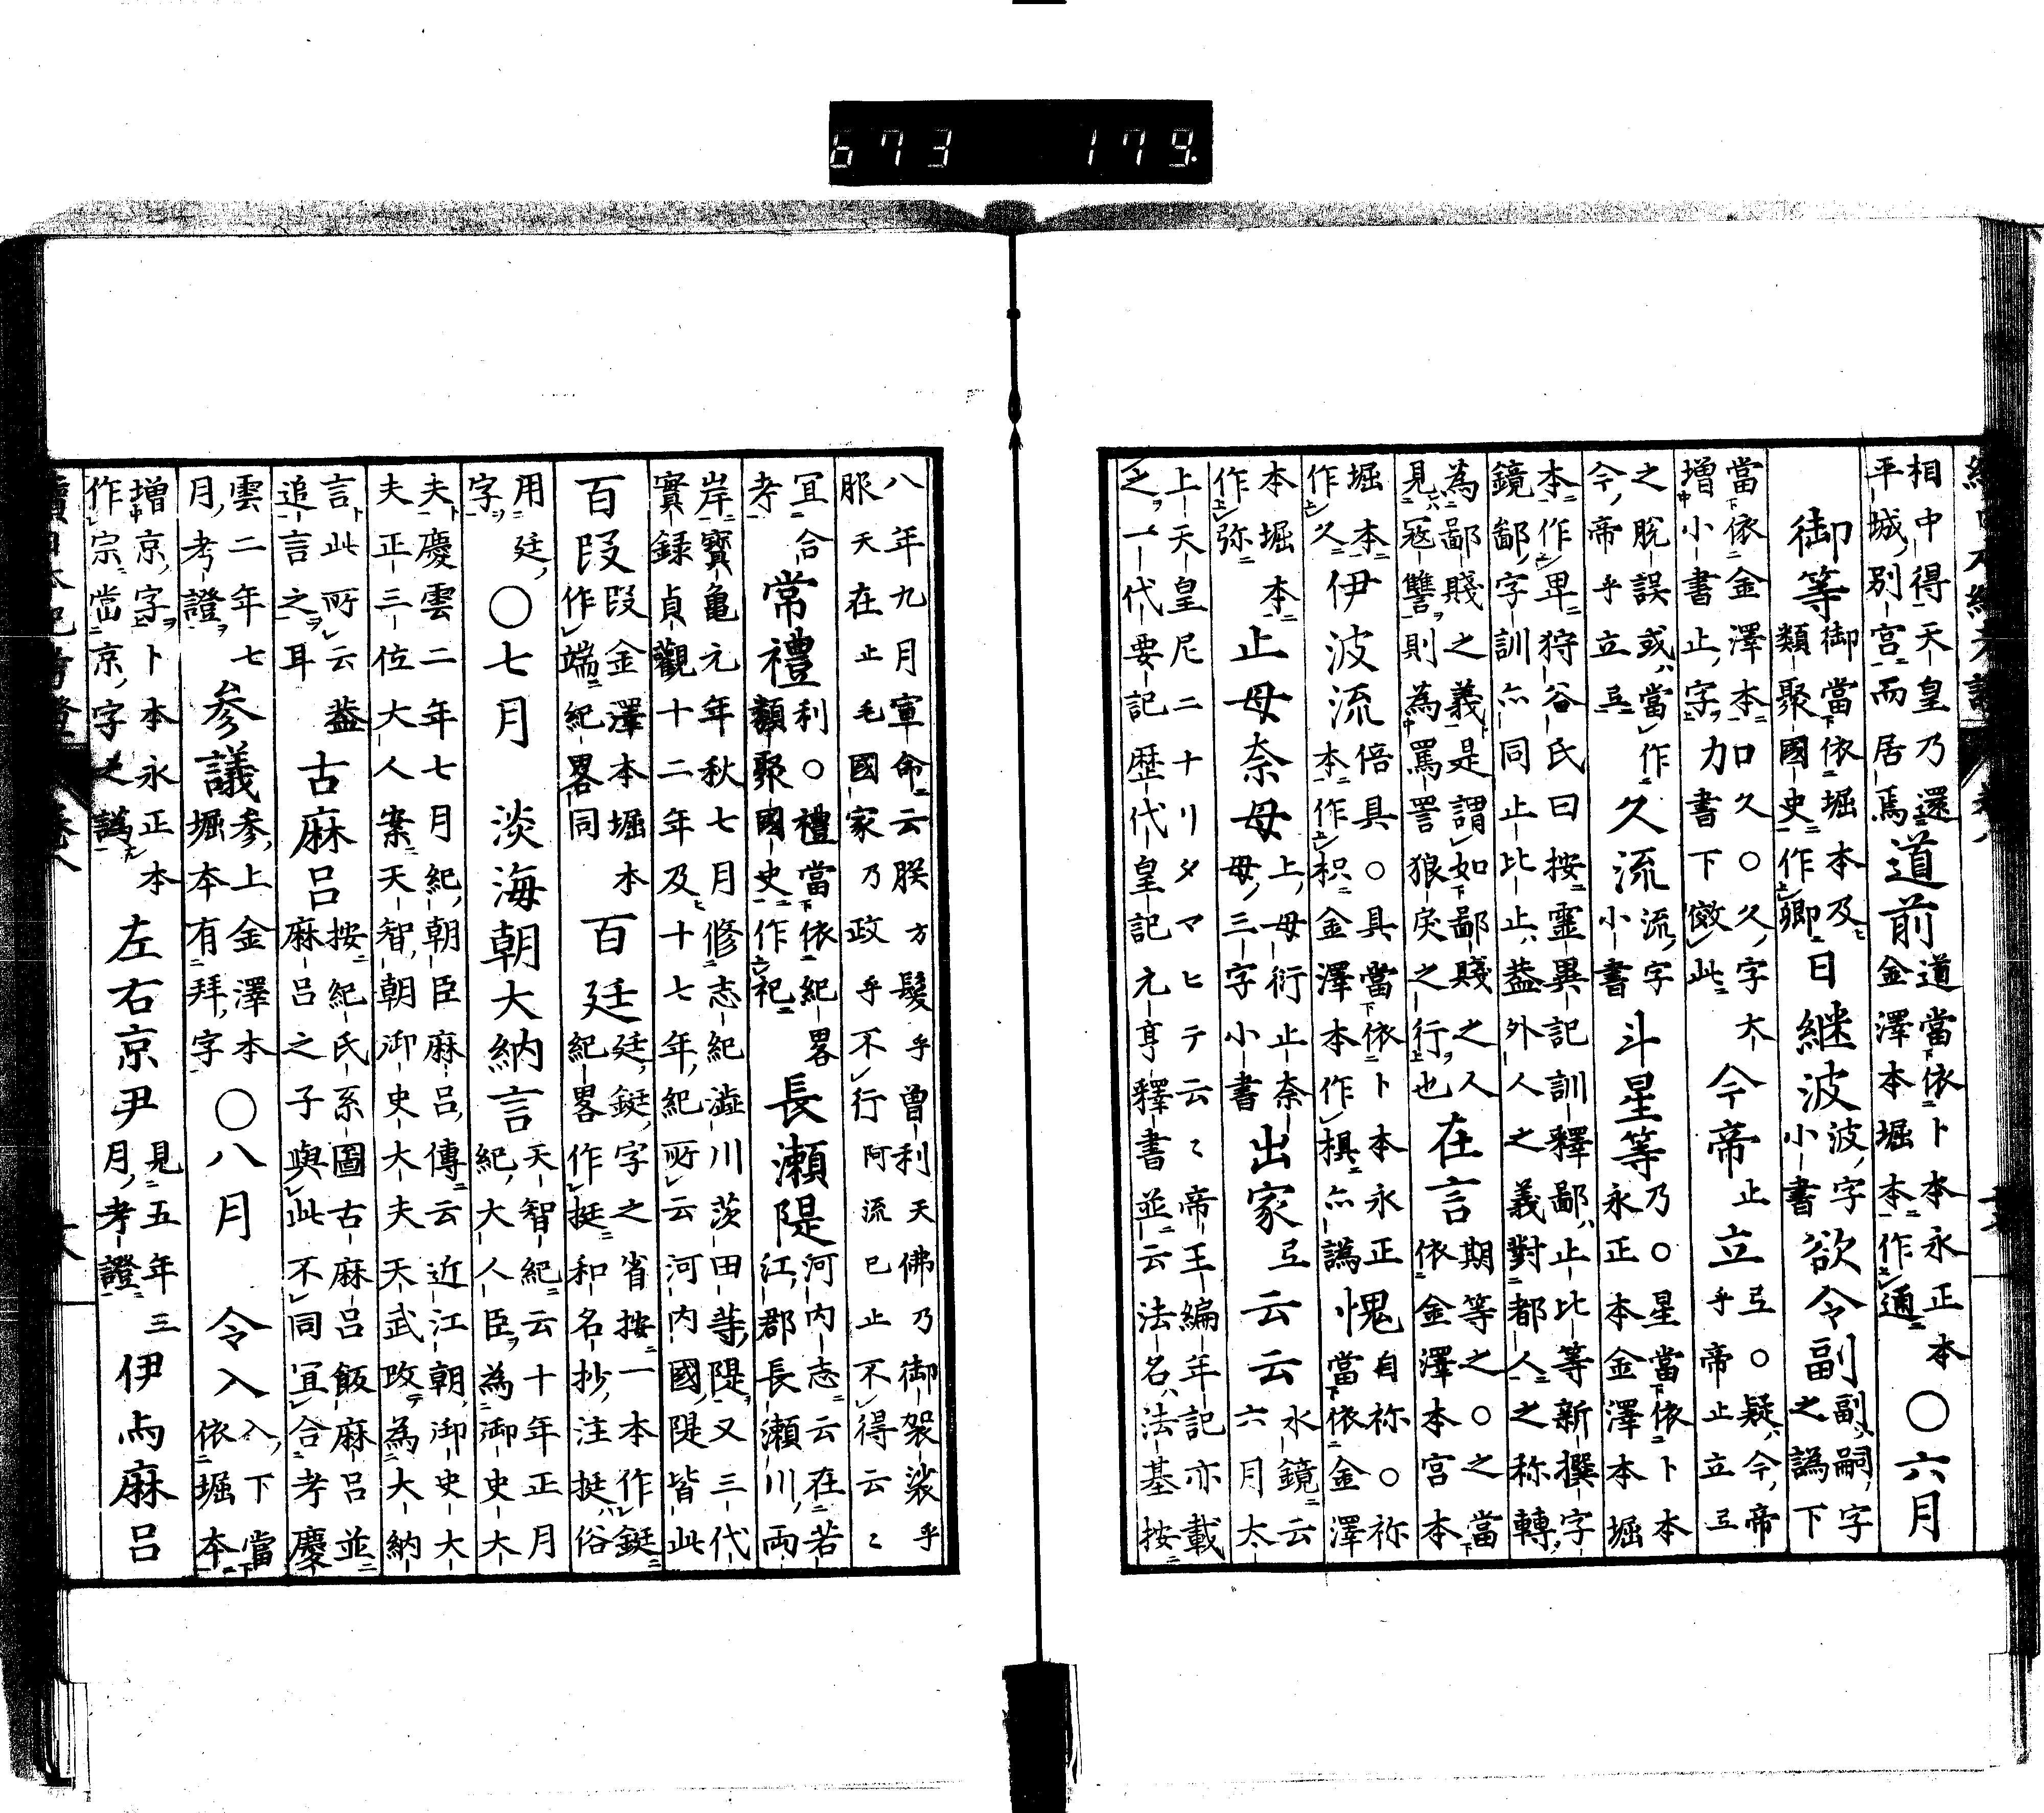 673 179
相中得天皇乃還
平城別宮而居焉
道前
道當依卜本永正本
金澤本堀本作通
○六月
御等
御當依堀本及
類聚國史作卿
日継波
波字
小書
欲令副
副嗣字
之譌下
當依金澤本
増小書止字
力
口久○久字大
書下傚此
今帝
止
立
弖○疑今帝
乎帝止立弖
之脫誤或當作
今帝乎立弖
久流
流字
小書
斗星等
乃○星當依卜本
永正本金澤本堀
本作卑狩谷氏曰按靈異記訓釋鄙止比等新撰字
鏡鄙字訓亦同止比止盖外人之義對都人之称轉
為鄙賤之義是謂如鄙賤之人
見寇讐則為罵詈狼戾之行也
在言
期等之○之當
依金澤本宮本
堀本
作久
伊波流
倍具○具當依卜本永正
本作枳金澤本作棋亦譌
愧
自祢○祢
當依金澤
本堀本
作弥
止母奈母
上母衍止奈
母三字小書
出家
弖
云云
水鏡云
六月太
上天皇尼二十リタマヒテ云々帝王編年記亦載
之一代要記歴代皇記元亨釋書並云法名法基按
八年九月軍命云朕方髮乎曾利天佛乃御袈裟乎
服天在止毛國家乃政乎不行阿流已止不得云々
宜合
考
常禮
利○禮當依紀畧
類聚國史作祀
長瀬隄
河内志云在若
江郡長瀬川両
岸寶亀元年秋七月修志紀澁川茨田等隄又三代
實録貞觀十二年及十七年紀所云河内國隄皆此
百段
段金澤本堀本
作端紀畧同
百廷
廷鋌字之省按一本作鋌
紀畧作挺和名抄注挺俗
用廷
字
○七月
淡海朝大納言
天智紀云十年正月
紀大人臣為御史大
夫慶雲二年七月紀朝臣麻呂傳云近江朝御史大
夫正三位大人案天智朝御史大夫天武攺為大納
言此所云盖
追言之耳
古麻呂
按紀氏系圖古麻呂飯麻呂並
麻呂之子與此不同宜合考慶
雲二年七
月考證
参議
参上金澤本
堀本有拜字
○八月
令入
入下當
依堀本
増京字卜本永正本
作宗當京字之譌
左右京尹
見五年三
月考證
伊両麻呂